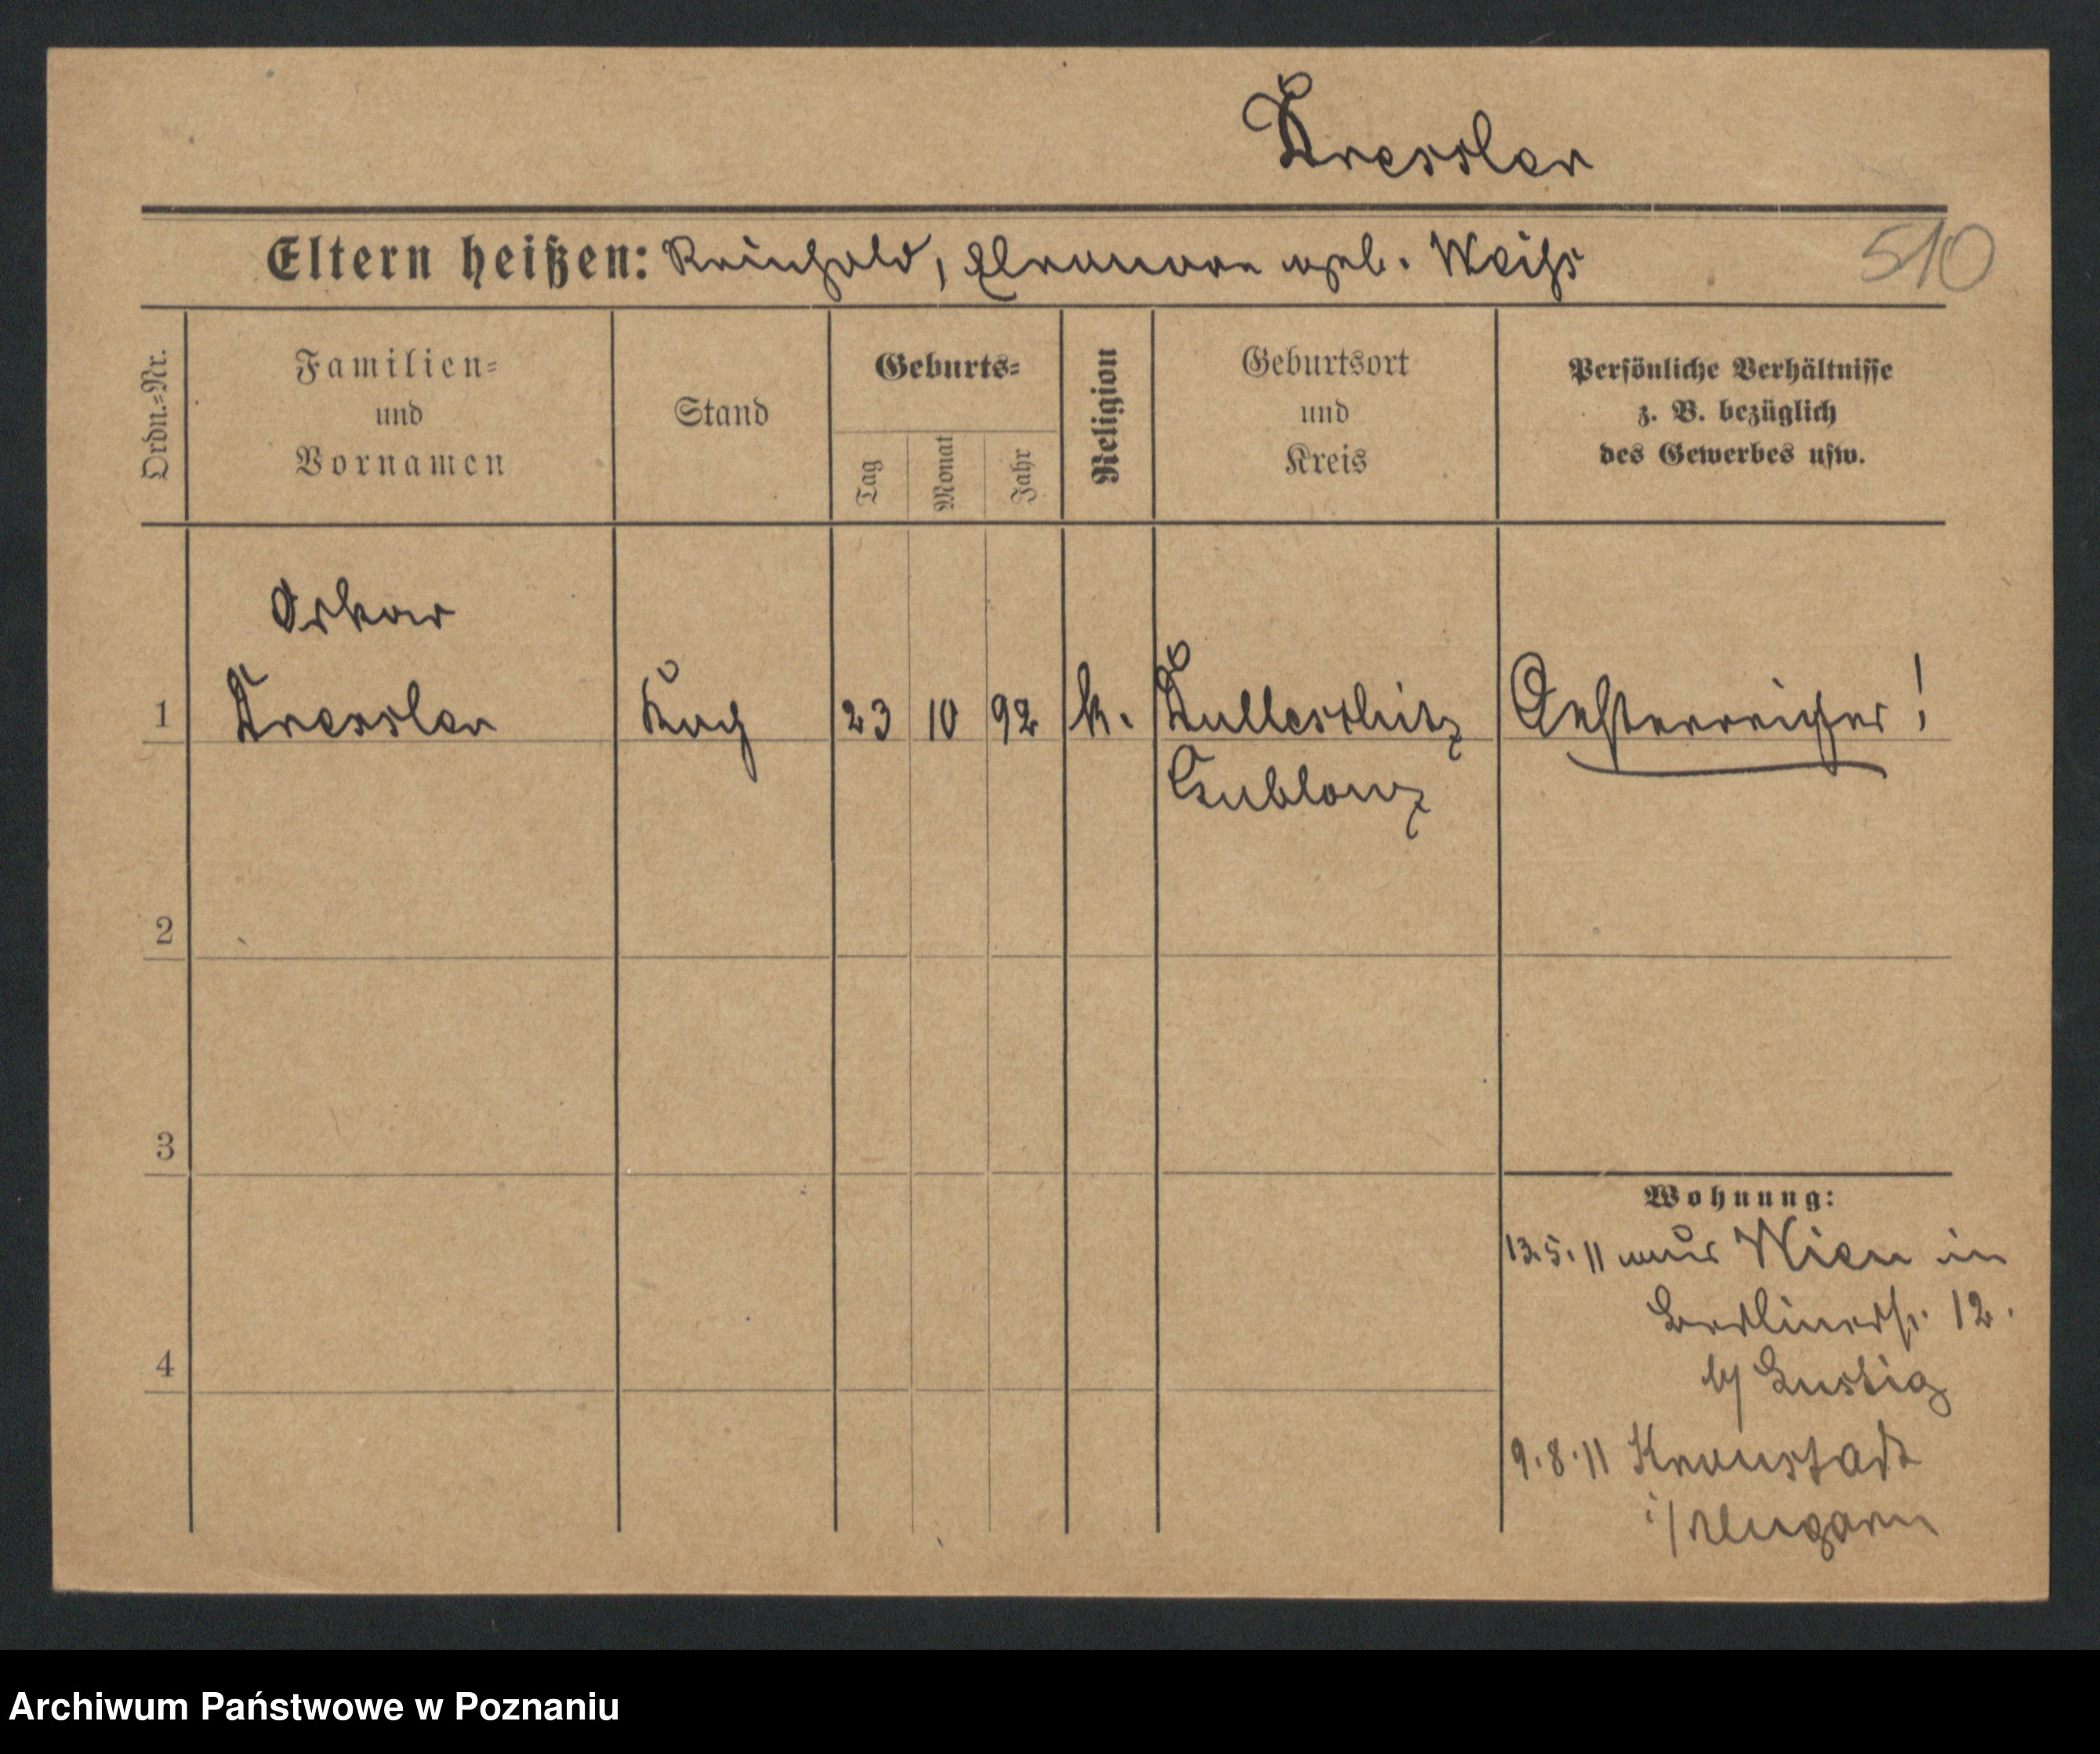 Dressler
Eltern heißen: Reinhold, Eleonore geb. Weiss
510
Ordn.=Nr.
Familien=
und
Vornamen
Stand
Geburts=
Tag
Monat
Jahr
Religion
Geburtsort
und
Kreis
Persönliche Verhältnisse
z. B. bezüglich
des Gewerbes usw.
Oskar
1 Dressler Koch 23 10 92 k. Dalleschitz Oesterreicher!
Gablonz
2
3
Wohnung:
13.5.11 aus Wien in
Berlinerstr. 12.
b/ Lustig
4
9.8.11 Kronstadt
i/Ungarn
Archiwum Państwowe w Poznaniu